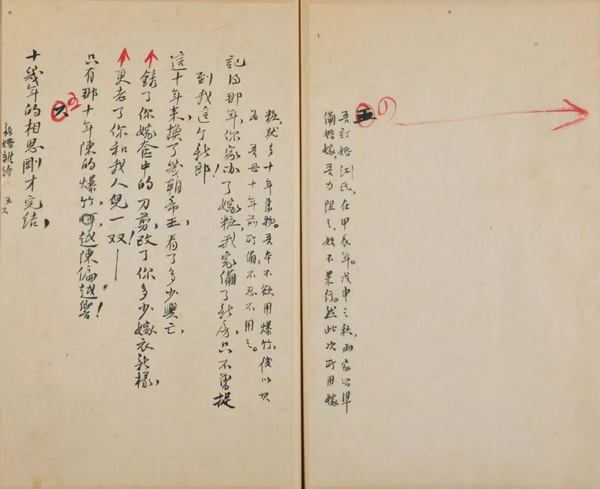 五
吾訂婚江氏,在甲辰年。戊申之秋,兩家皆準
備婚嫁,吾力阻之,始不果行。然此次所用嫁
粧,猶多十年舊物。吾本不欲用爆竹,後以其
為吾母十年前所備,不忍不用之。
記得那年,你家办了嫁粧,我家備了新房,只不曾捉
到我這个新郎!
這十年来,換了幾朝帝王,看了多少興亡,
銹了你嫁奩中的刀剪,改了你多少嫁衣新樣,
更老了你和我人兒一双!——
只有那十年陳的爆竹呵,越陳偏越響!
六
十幾年的相思剛才完結,
新婚雜詩 五六